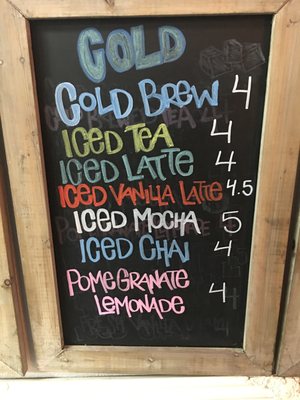 COLD
COLD BREW 4
ICED TEA 4
ICED LATTE 4
ICED VANILLA LATTE 4.5
ICED MOCHA 5
ICED CHAI 4
POMEGRANATE
LEMONADE 4